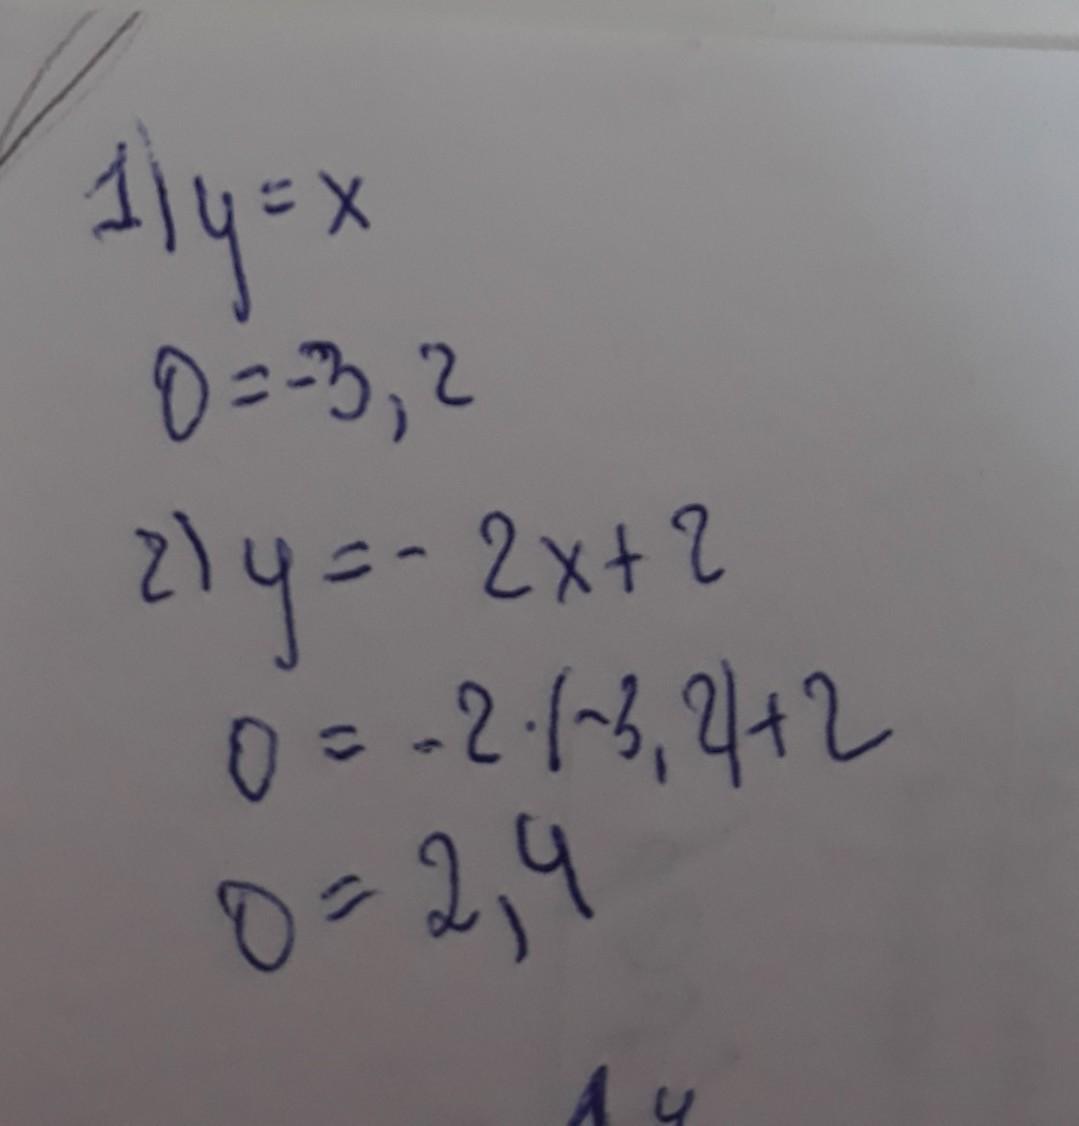 1) y = x
0 = -3,2
2) y = - 2x + 2
0 = -2 · (-3,2) + 2
0 = 2,4
y